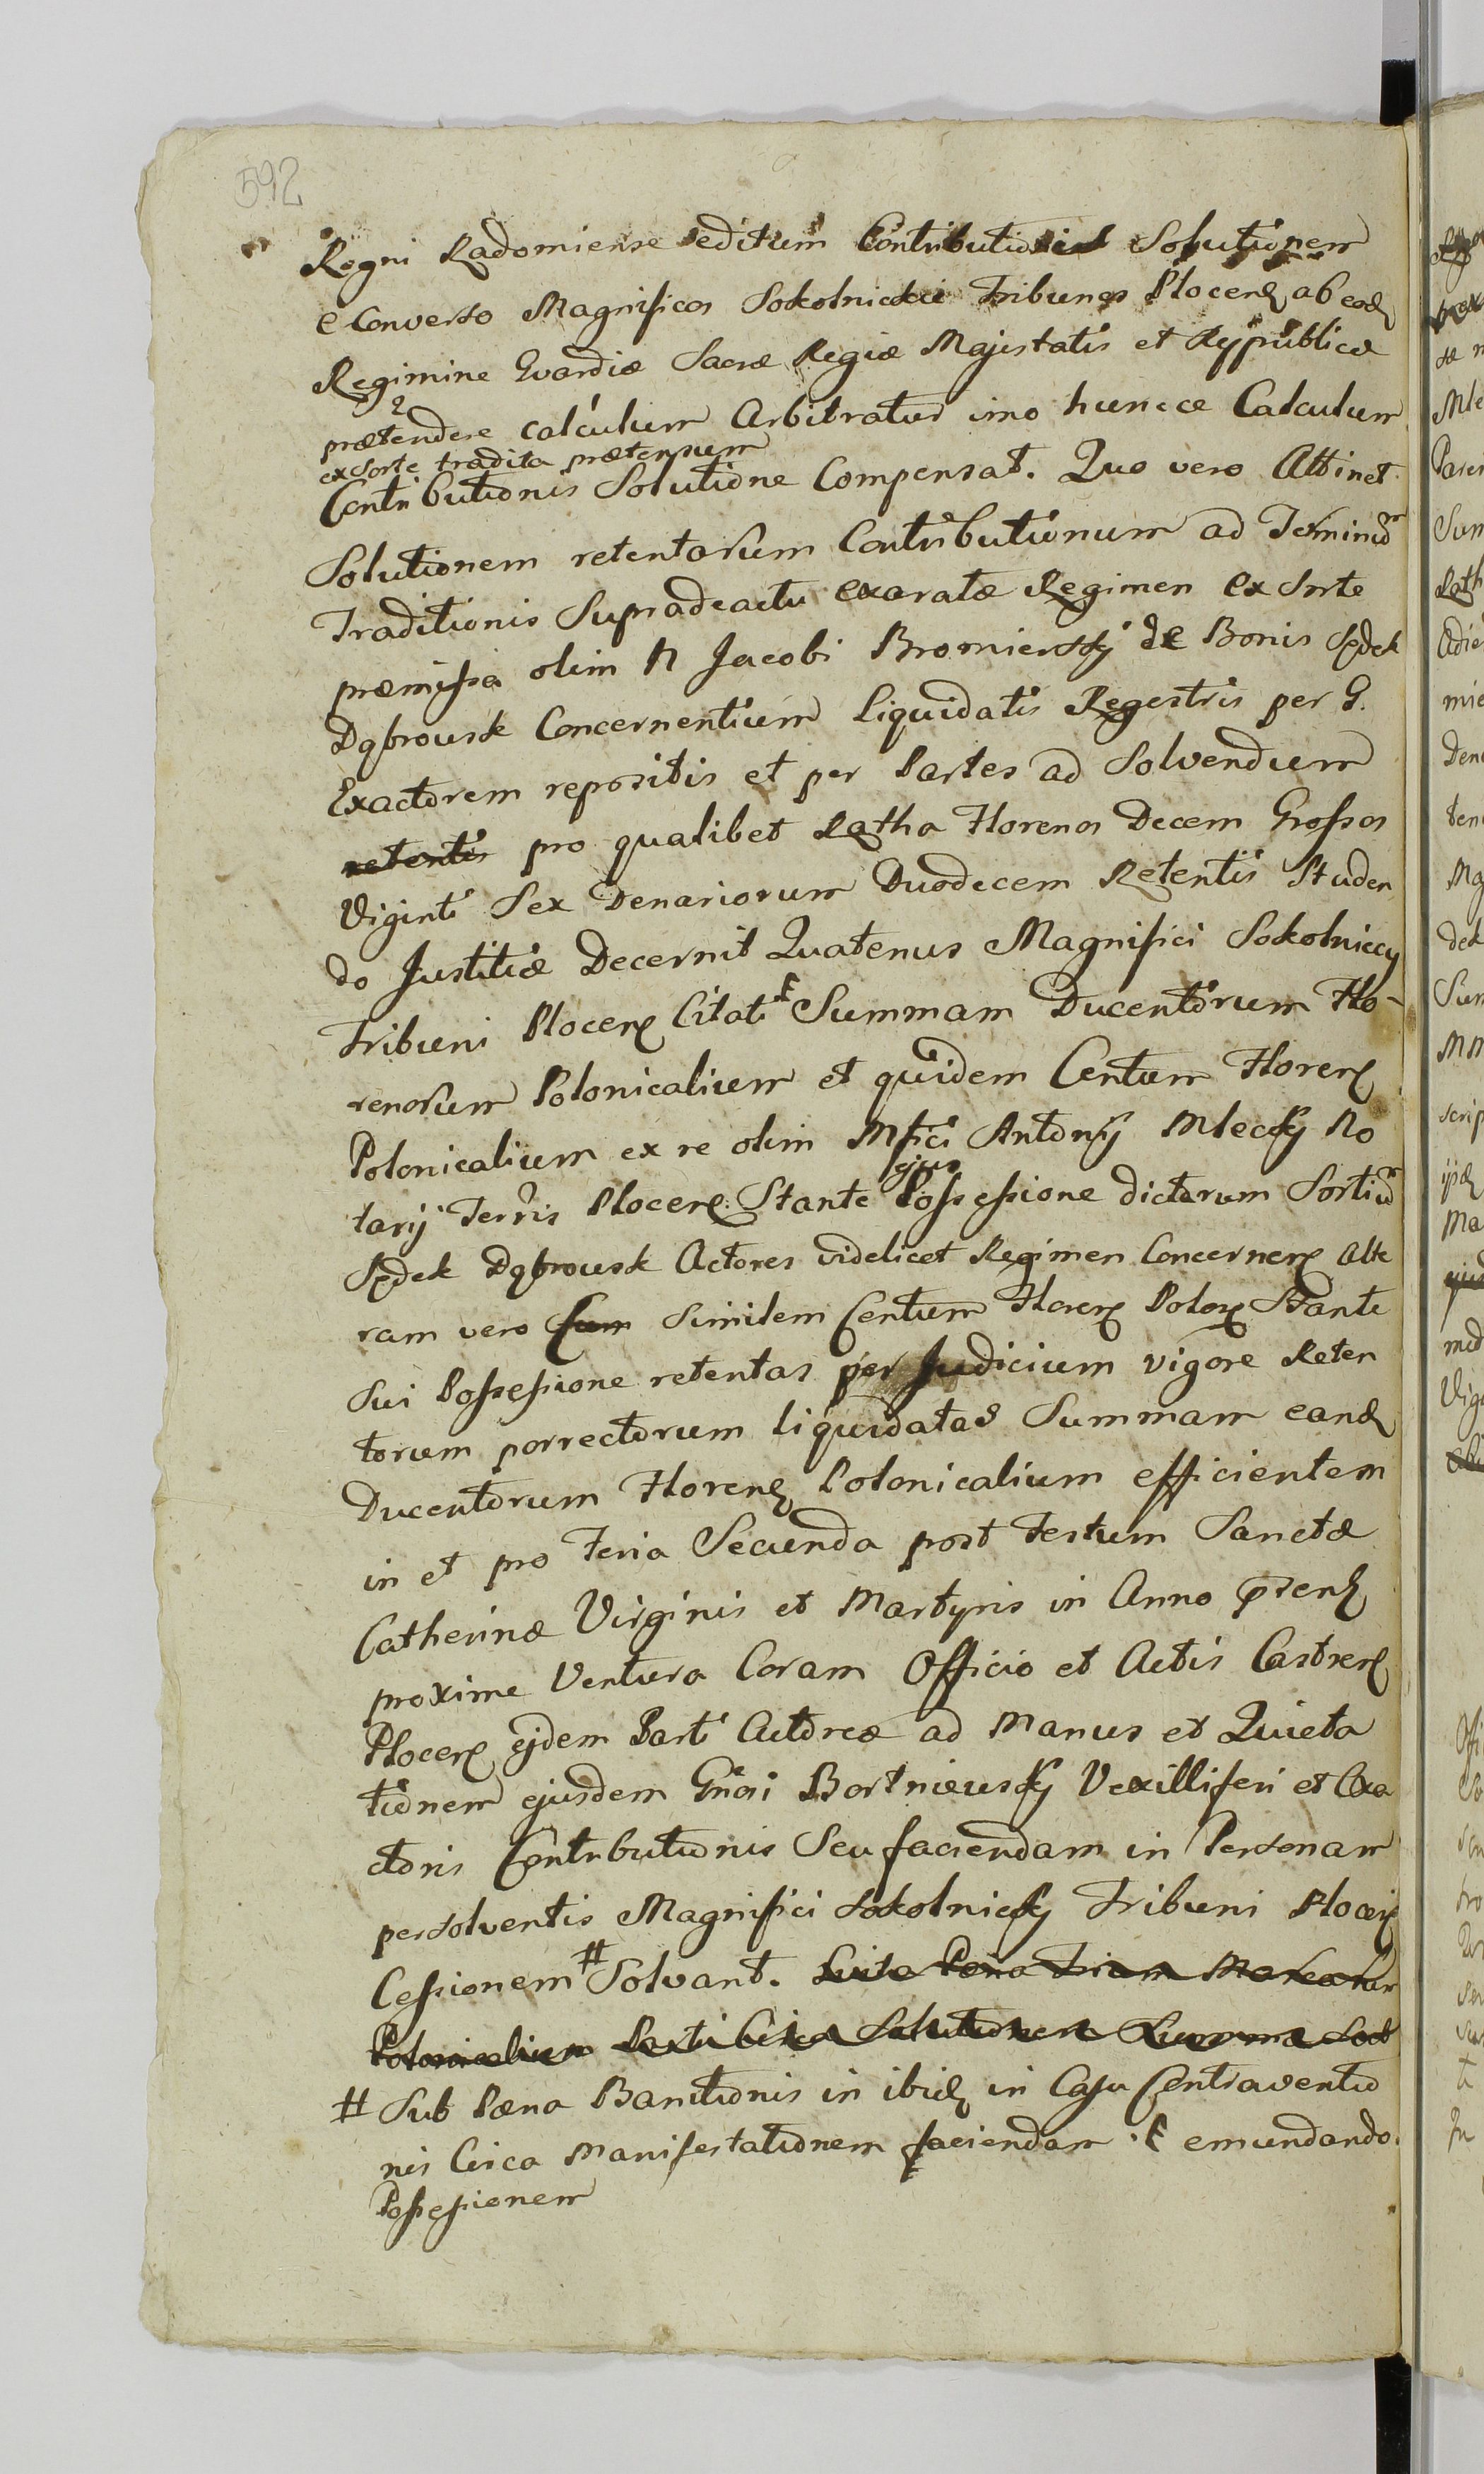 592
Regni Radomiense seditum Contributionis Solutionem
e Converso Magnificos Sokolnickii Tribunos Plocens ab eod
Regimine Gvardiæ Sacræ Regiæ Majestatis et Rypublicæ
prætendere calculum Arbitratur imo huncce Calculum
ex Sorte tradita prætensum
Contributionis Solutione Compensat. Quo vero Attinet
Solutionem retentarum Contributionum ad Terminum
Traditionis Supradeactu exaratæ Regimen ex Sorte
præmissa olim N Jacobi Bromiersky de Bonis Sędek
Dąbrowsk Concernentium liquidatis Regestris per G.
Exactorem repositis et per Partes ad Solvendum
retentis pro qualibet Ratha Florenos Decem Grossos
Viginti Sex Denariorum Duodecem Retentis Studen
do Justitiæ Decernit Quatenus Magnifici Sokolniccy
Tribuni Plocens Citati Summam Ducentorum Flo-
renorum Polonicalium et quidem Centum Florens
Polonicalium ex re olim Mfici Antonij Mlecky No
tarij Terris Plocens. Stante ejus Possessione dictarum Sortium
Sędek Dąbrowsk Actores videlicet Regimen Concernens Alte
ram vero Sum Similem Centum Florens Polons Stante
Sui Possessione retentas per Judicium vigore Reten
torum porrectorum liquidatas Summam eand
Ducentorum Florens Polonicalium efficientem
in et pro Feria Secunda post Festum Sanctæ
Catherinæ Virginis et Martyris in Anno prsens
proxime Ventura Coram Officio et Actis Castrens
Plocens ejdem Parti Actoreæ ad Manus et Quieta
tionem ejusdem Gnosi Bortniewsky Vexilliferi et Exa
ctoris Contributionis Seu faciendam in Personam
persolventis Magnifici Sokolnicky Tribuni Plocens
Cessionem # Solvant. Luito Pæna Trium Marcarum
Polonicalium Parti Circa Solutionem Summa Soct
# Sub Pæna Banitionis in ibid in Casu Contraventio
nis Circa Manifestationem faciendam. emundando
Possessionem